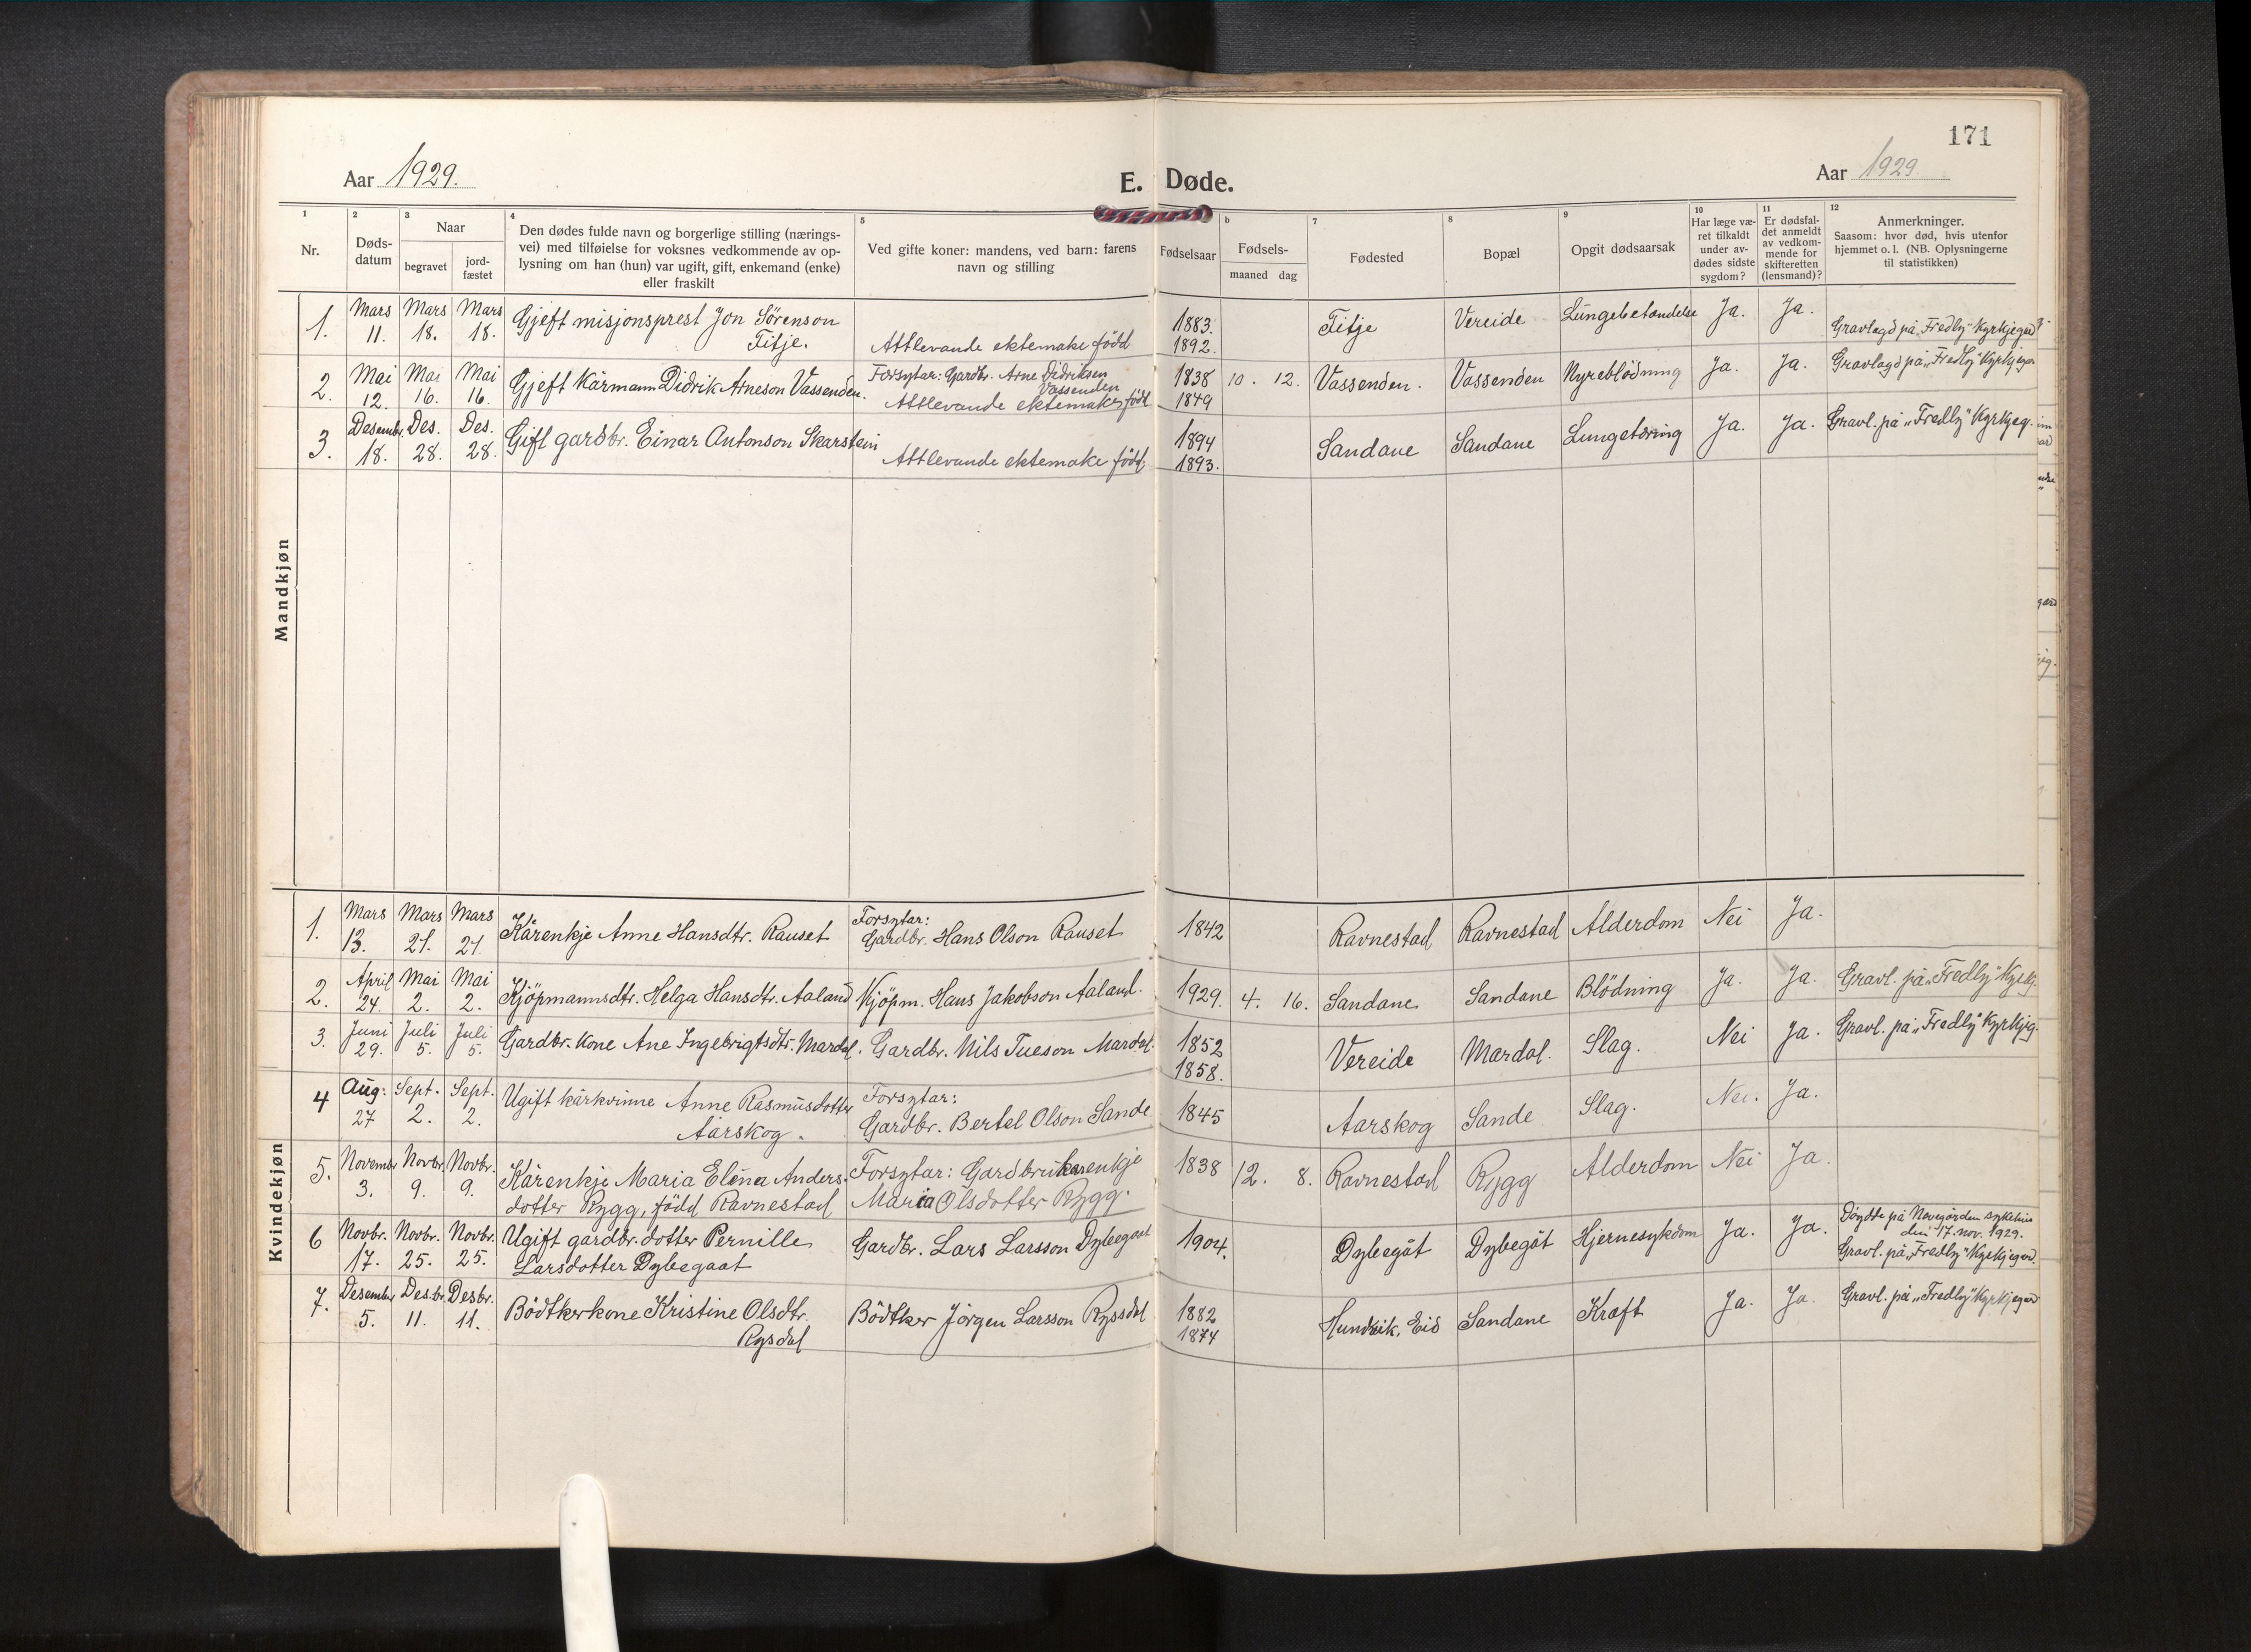 171
Aar 1929.
E. Døde.
Aar 1929
1 Nr.
2 Døds-datum
3 Naar
begravet
jord-fæstet
4 Den dødes fulde navn og borgerlige stilling (nærings-
vei) med tilføielse for voksnes vedkommende av op-
lysning om han (hun) var ugift, gift, enkemand (enke)
eller fraskilt
5 Ved gifte koner: mandens, ved barn: farens
navn og stilling
Fødselsaar
b Fødsels-
maaned dag
7 Fødested
8 Bopæl
9 Opgit dødsaarsak
10 Har læge væ-
ret tilkaldt
under av-
dødes sidste
sygdom?
11 Er dødsfal-
det anmeldt
av vedkom-
mende for
skifteretten
(lensmand)?
12 Anmerkninger.
Saasom: hvor død, hvis utenfor
hjemmet o. l. (NB. Oplysningerne
til statistikken)
Mandkjøn
1. Mars 11. Mars 18. Mars 18. Gjeft misjonsprest Jon Sörenson 1883. Titje Vereide Lungebetændelse Ja. Ja.
Titje. Attlevande ektemake född 1892. Gravlagd på „Fredly" Kyrkjegard
2. Mai 12. Mai 16. Mai 16. Gjeft kårmann Didrik Arneson Vassenden. Forsytar: Gardbr. Arne Didriksen Vassenden 1838 10. 12. Vassenden. Vassenden Nyreblödning Ja. Ja. Gravlagd på „Fredly" Kyrkjegar
Attlevande ektemake född 1849
3. Desembr. 18. Des. 28. Des. 28. Gift gardbr. Einar Antonson Skarstein 1894 Sandane Sandane Lungetæring Ja. Ja. Gravl. på „Fredly" Kyrkjeg.
Attlevande ektemake född. 1893.
Kvindekjøn
1. Mars 13. Mars 21. Mars 21 Kårenkje Anne Hansdtr. Rauset Forsytar: Gardbr. Hans Olson Rauset 1842 Ravnestad Ravnestad Alderdom Nei Ja.
2. April 24. Mai 2. Mai 2. Kjöpmannsdtr. Helga Hansdtr. Aaland Kjöpm. Hans Jakobson Aaland. 1929. 4. 16. Sandane Sandane Blödning Ja. Ja. Gravl. på „Fredly" Kyrkj.
3. Juni 29. Juli 5. Juli 5. Gardbr. kone Ane Ingebrigtsdtr. Mardal. Gardbr. Nils Tueson Mardal. 1852 Vereide Mardal. Slag. Nei Ja. Gravl. på „Fredly" Kyrkjeg.
1858.
4 Aug: 27 Sept. 2. Sept. 2. Ugift kårkvinne Anne Rasmusdotter Forsytar: 1845 Aarskog Sande Slag. Nei. Ja.
Aarskog. Gardbr. Bertel Olson Sande
5. Novembr 3. Novbr. 9. Novbr. 9. Kårenkje Maria Elina Anders- Forsytar: Gardbrukarenkje 1838 12. 8. Ravnestad Rygg Alderdom Nei Ja.
dotter Rygg, född Ravnestad Maria Olsdotter Rygg.
6 Novbr. 17. Novbr. 25. Novbr. 25. Ugift gardbr. dotter Pernille Gardbr. Lars Larsson Dybegaat 1904. Dybegåt Dybegåt Hjernesykdom Ja. Ja. Döydde på Nevegården sykehus
Larsdotter Dybegaat den 17. nov. 1929.
Gravl. på „Fredly" Kyrkjegard.
7. Desember 5. Desbr. 11. Desbr. 11. Bödtkerkone Kristine Olsdtr. Bödtker Jörgen Larsson Ryssdal 1882 Hundeik, Eid Sandane Kræft Ja. Ja Gravl. på „Fredly" Kyrkjegard
Rysdal 1874